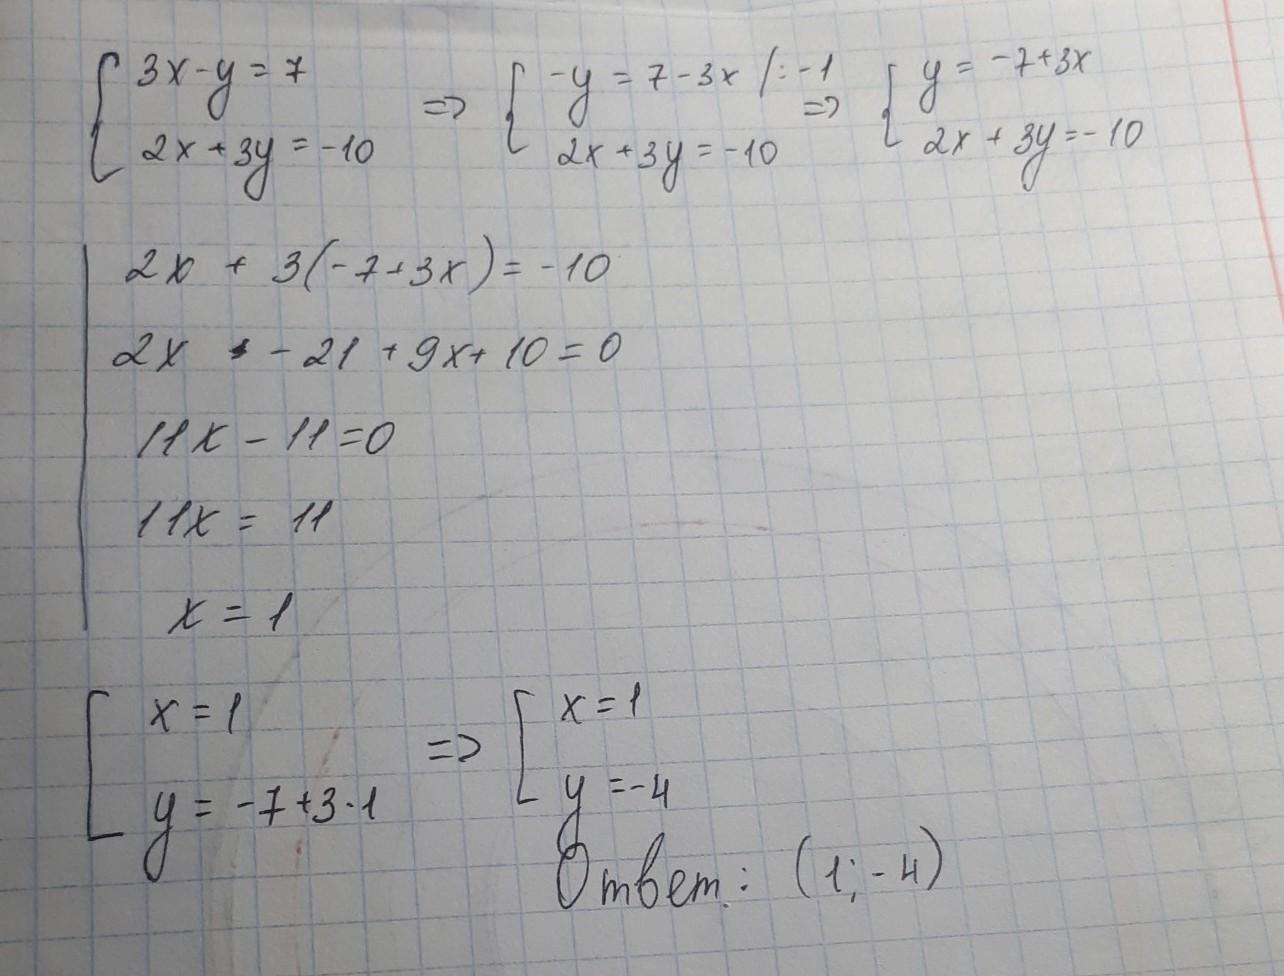 { 3x - y = 7 => { -y = 7 - 3x /: -1 => { y = -7 + 3x
2x + 3y = -10 2x + 3y = -10 2x + 3y = -10
2x + 3(-7 + 3x) = -10
2x - 21 + 9x + 10 = 0
11x - 11 = 0
11x = 11
x = 1
[ x = 1 => [ x = 1
y = -7 + 3 · 1 y = -4
Ответ: (1; -4)